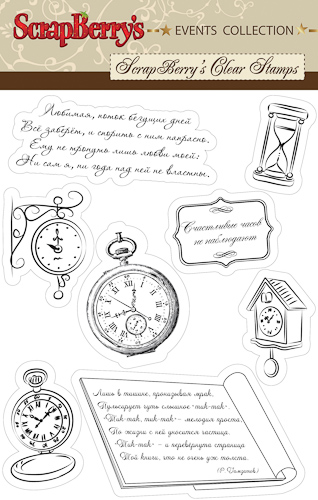 ScrapBerry's
EVENTS COLLECTION
ScrapBerry's Clear Stamps
Любимая, поток бегущих дней
Всё заберёт, и спорить с ним напрасно.
Ему не тронуть лишь любви моей:
Ни сам я, ни года над ней не властны.
Счастливые часов
не наблюдают
Лишь в тишине, пронизывая мрак,
Пульсирует чуть слышное "тик-так".
"Тик-так, тик-так" – мелодия проста,
Но жизни с ней уносится частица.
"Тик-так" – и перевернута страница
Той книги, что не очень уж толста.